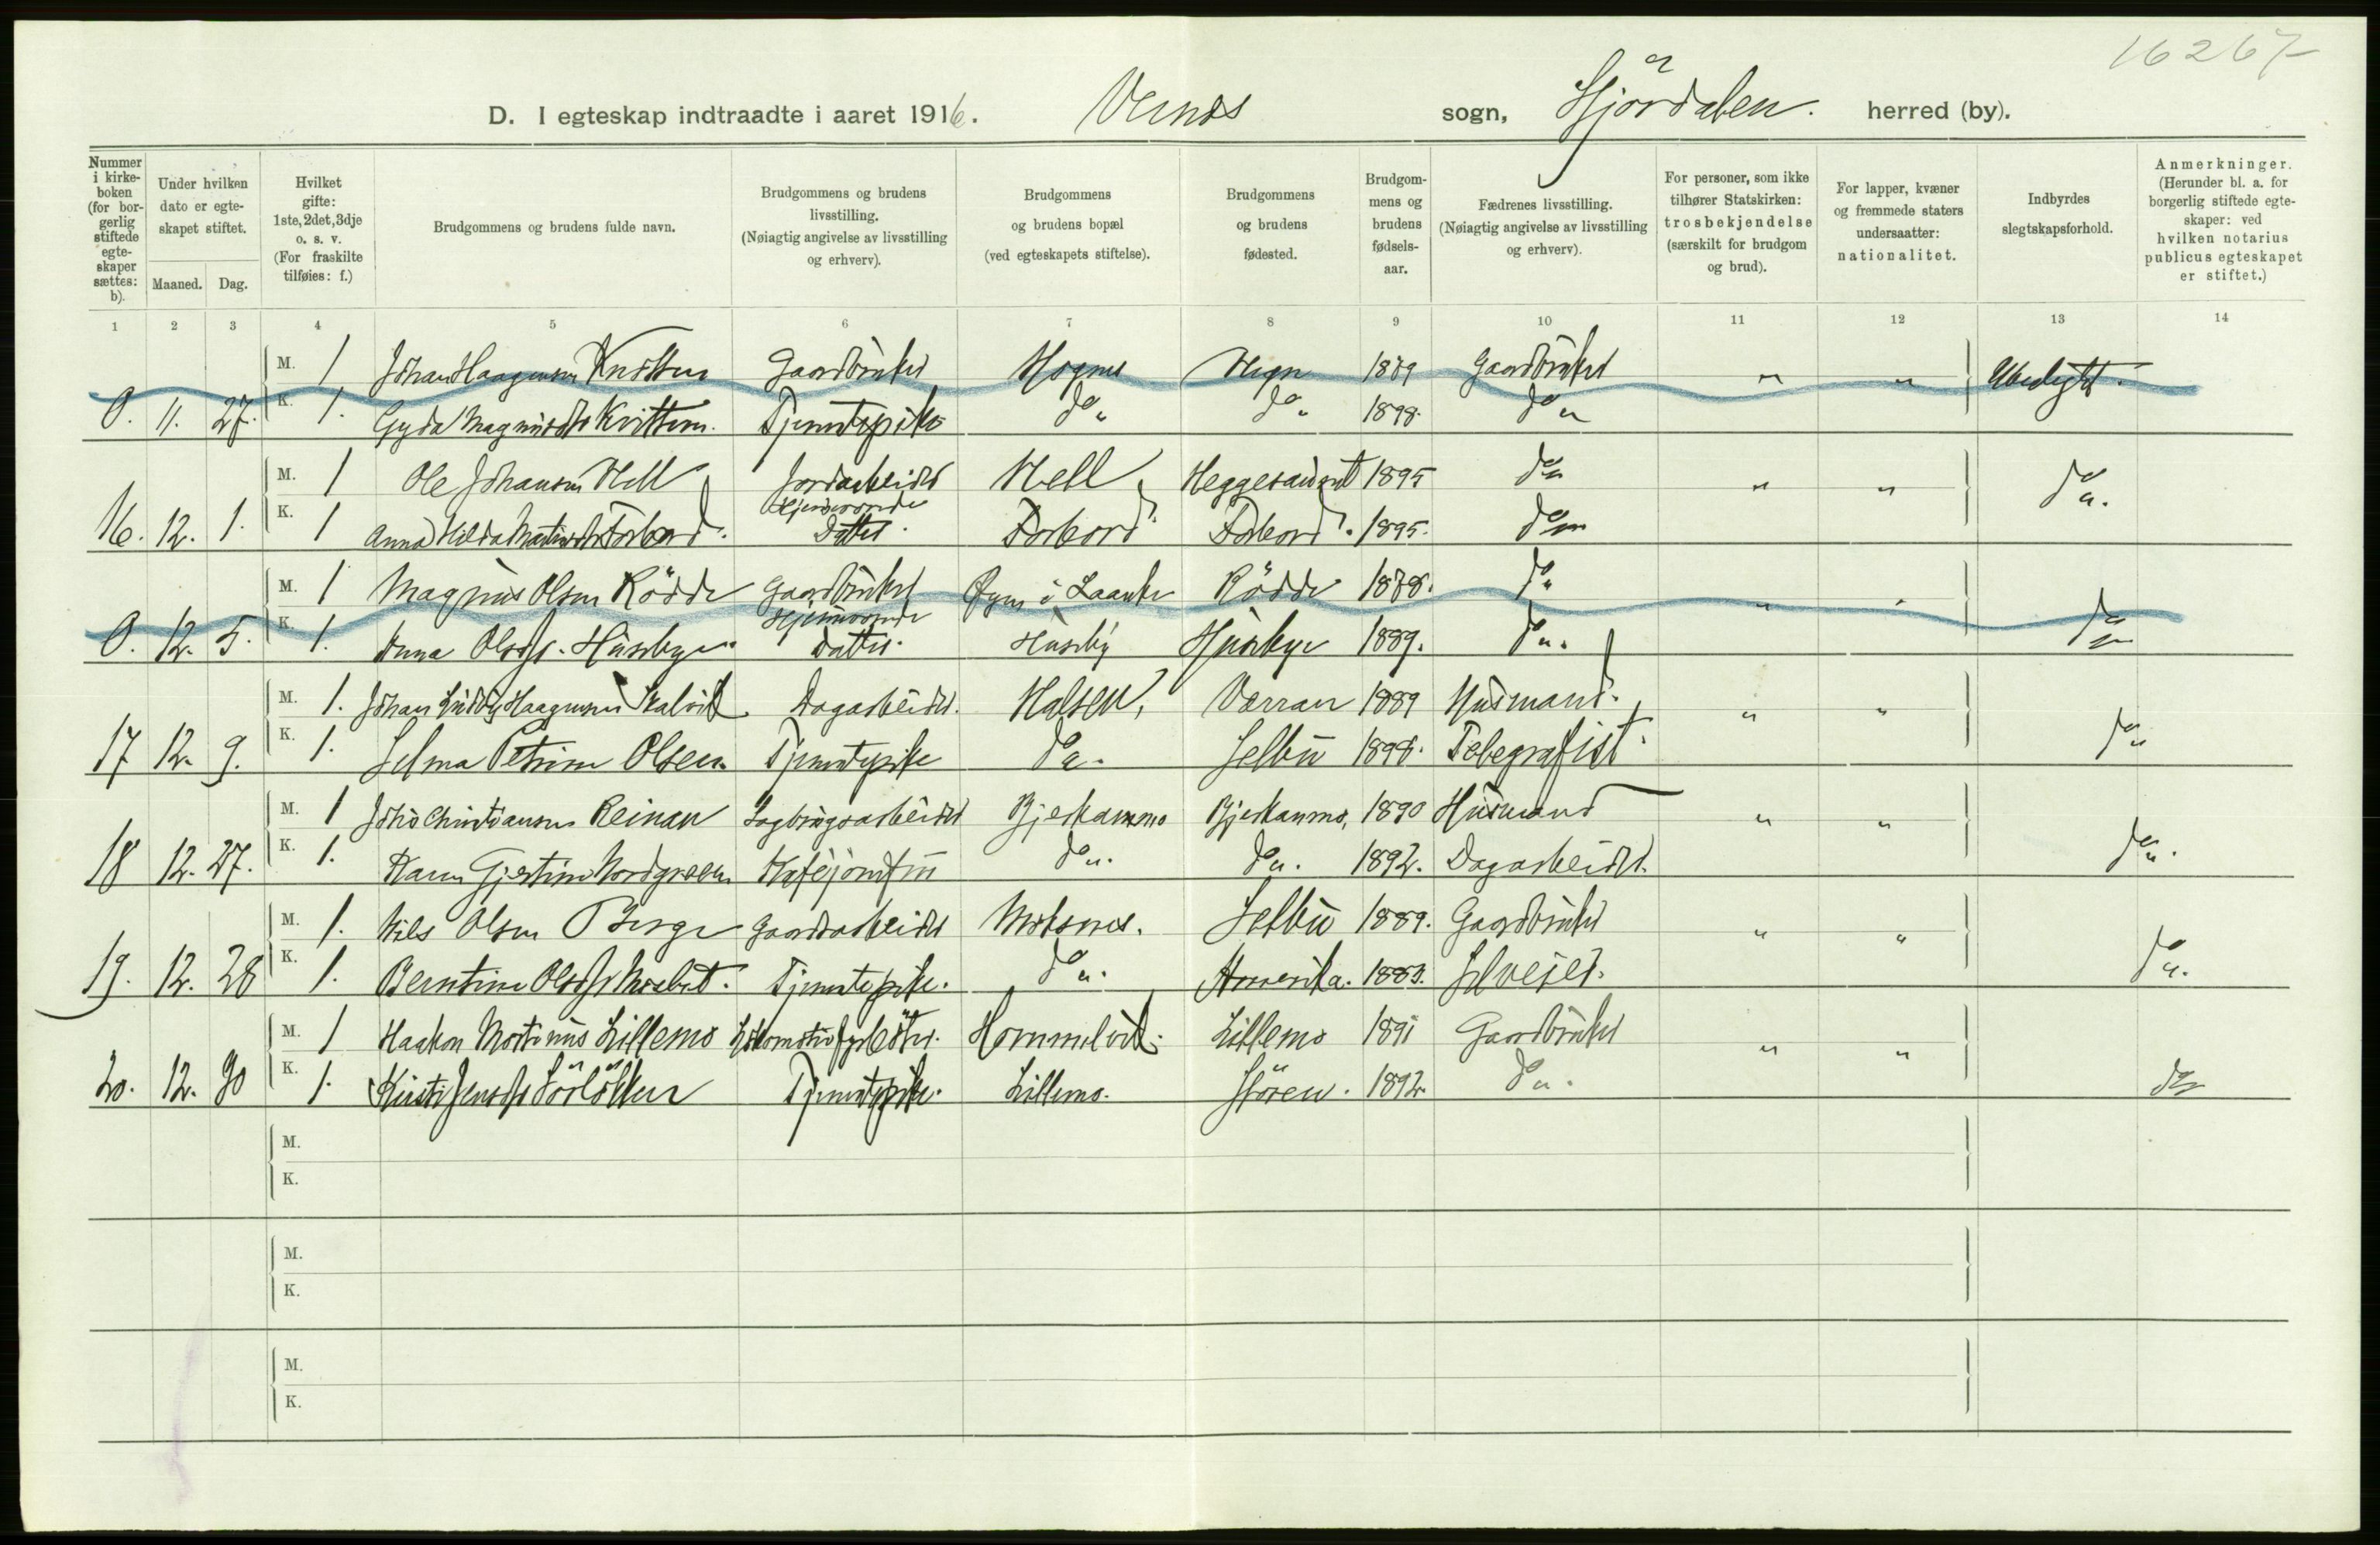 16267
D. I egteskap indtraadte i aaret 1916. Vernes sogn, Stjördalen. herred (by).
Nummer i kirkeboken (for borgerlig stiftede egteskaper sættes: b).
Under hvilken dato er egteskapet stiftet.
Maaned. Dag.
Hvilket gifte: 1ste, 2det, 3dje o. s. v. (For fraskilte tilføies: f.)
Brudgommens og brudens fulde navn.
Brudgommens og brudens livsstilling. (Nøiagtig angivelse av livsstilling og erhverv).
Brudgommens og brudens bopæl (ved egteskapets stiftelse).
Brudgommens og brudens fødested.
Brudgommens og brudens fødselsaar.
Fædrenes livsstilling. (Nøiagtig angivelse av livsstilling og erhverv).
For personer, som ikke tilhører Statskirken: trosbekjendelse (særskilt for brudgom og brud).
For lapper, kvæner og fremmede staters undersaatter: nationalitet.
Indbyrdes slegtskapsforhold.
Anmerkninger. (Herunder bl. a. for borgerlig stiftede egteskaper: ved hvilken notarius publicus egteskapet er stiftet.)
1 2 3 4 5 6 7 8 9 10 11 12 13 14
M. 1 Johan Haagensen Gaardbruker 1889 Gaardbruker " " Ubeslegtet.
0. 11. 27. K. 1. Gyda Tjenestepike do " do " 1898. do "
M. 1 Ole Johansen Hell Jordarbeider Hell 1895 do " " " do ".
16. 12. 1. K. 1 Anna Hilda Forbord. Hjemmeværende Datter. Forbord Forbord. 1895. do "
M. 1 Magnus Olsen Rödde Gaardbruker Rödde 1878. do " " "
0. 12. 5. K. 1. Anna Olsdtr. Husbye Hjemmeværende datter. Husby Husbye 1889. do ". do "
M. 1. Johan Ludvig Haagensen Dagarbeider. Halsen, Værran 1889 Husmand. " "
17 12. 9. K. 1. Selma Petrine Olsen. Tjenestepike do ". Selbu 1898. Telegrafist. do "
M. 1 Christiansen Reinan Sagbrugsarbeider 1890 Husmand " "
18 12. 27. K. 1. Karen Gjertine do ". do ". 1892. Dagarbeider. do ".
M. 1. Nils Olsen Berge Gaardsarbeider Moksnes. Selbu 1889. Gaardbruker " "
19. 12. 28 K. 1. Berntine Olsdtr Tjenestepike. do ". Amerika. 1883. Selveier. do ".
M. 1 Haakon Martinus Lillemo Lokomotivfyrbøter. Hommelvik. Lillemo 1891 Gaardbruker " "
20. 12. 30 K. 1. Kirsti Jensdtr Tjenestepike. Lillemo. Stören. 1892. do ". do "
M.
K.
M.
K.
M.
K.